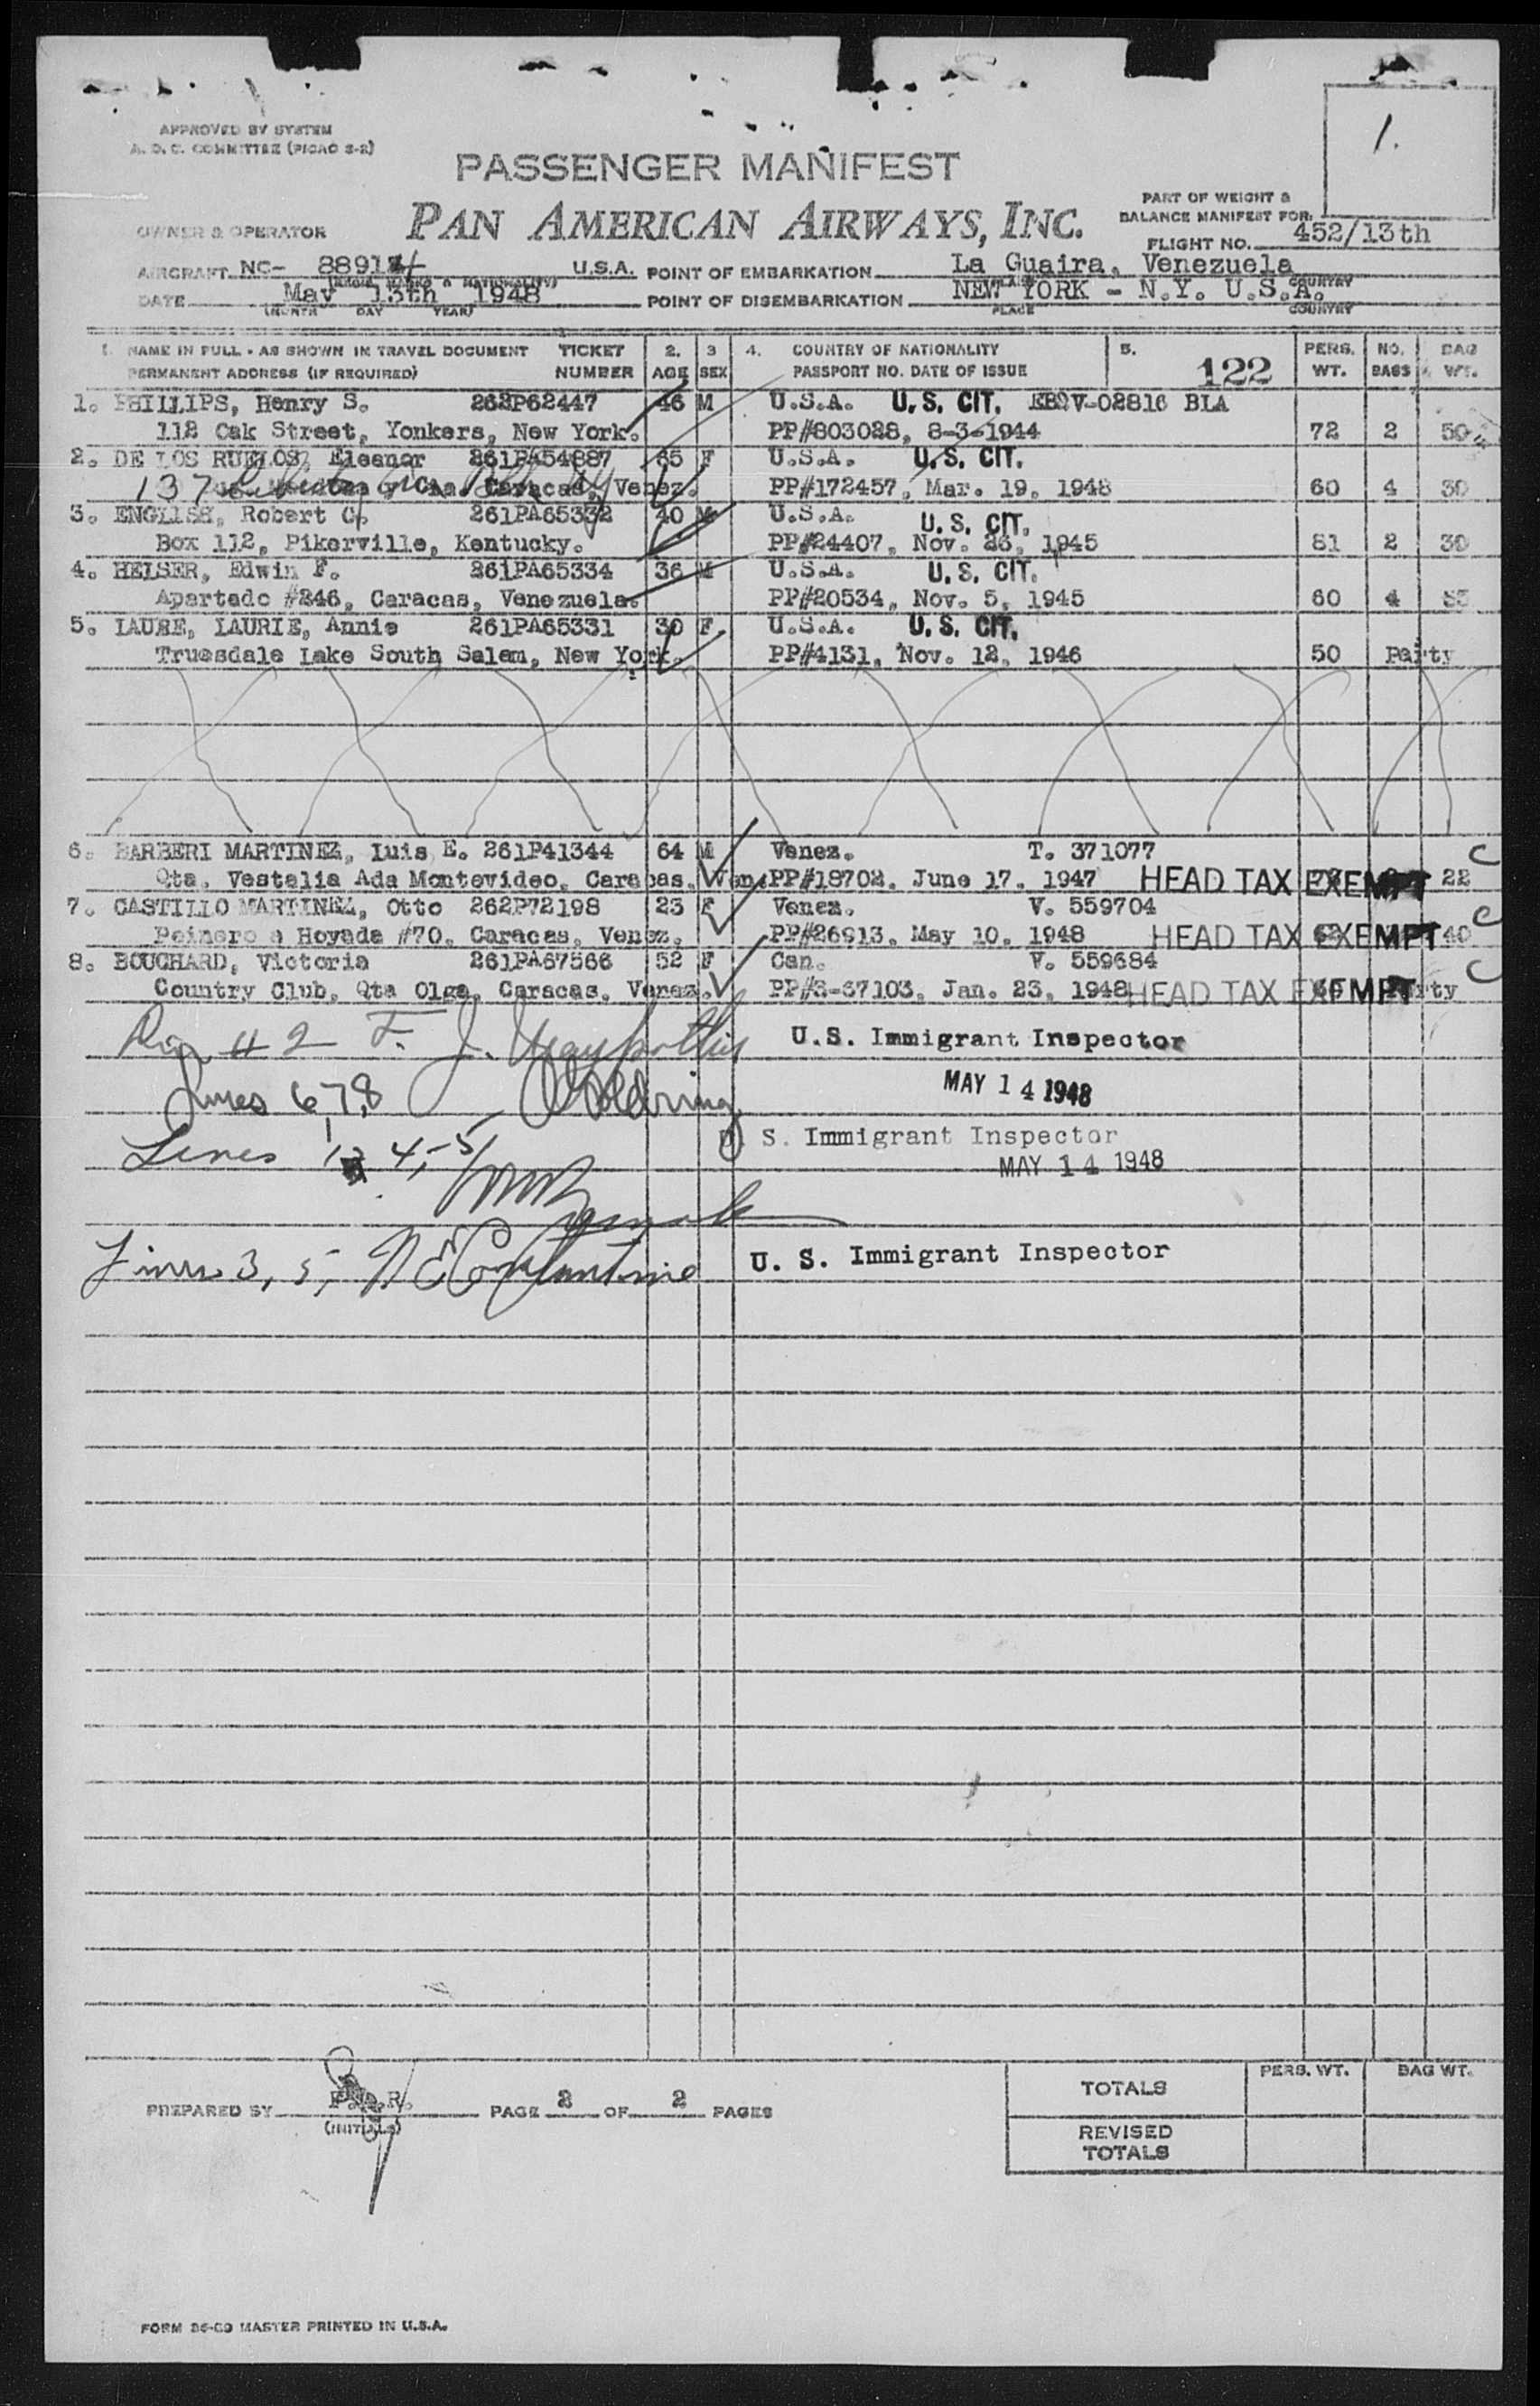 1.
APPROVED BY SYSTEM
A. O. C. COMMITTEE (PICAO S-2)
PASSENGER MANIFEST
PAN AMERICAN AIRWAYS, INC.
PART OF WEIGHT &
BALANCE MANIFEST FOR:
OWNER & OPERATOR
FLIGHT NO. 452/13th
AIRCRAFT NC- 8891 U.S.A. POINT OF EMBARKATION La Guaira, Venezuela
DATE May 13th 1948 POINT OF DISEMBARKATION NEW YORK - N.Y. U.S.A.
(MONTH DAY YEAR) PLACE COUNTRY
1. NAME IN FULL - AS SHOWN IN TRAVEL DOCUMENT TICKET 2. 3 4. COUNTRY OF NATIONALITY 5. 122 PERS. NO. BAG
PERMANENT ADDRESS (IF REQUIRED) NUMBER AGE SEX PASSPORT NO. DATE OF ISSUE WT. BAGS WT.
1. PHILLIPS, Henry S. 262P62447 46 M U.S.A. U.S. CIT. V-02816 BLA
112 Oak Street, Yonkers, New York. PP#803028, 8-3-1944 72 2 50
2. DE LOS RUELOS, Eleanor 261PA54887 F U.S.A. U.S. CIT.
137 Caracas, Venez. PP#172457, Mar. 19, 1948 60 4 30
3. ENGLISH, Robert C. 261PA65332 40 M U.S.A. U.S. CIT.
Box 112, Pikerville, Kentucky. PP#24407, Nov. 26, 1945 81 2 30
4. HELSER, Edwin F. 261PA65334 36 M U.S.A. U.S. CIT.
Apartado #246, Caracas, Venezuela. PP#20534, Nov. 5, 1945 60 4
5. LAURE, LAURIE, Annie 261PA65331 30 F U.S.A. U.S. CIT.
Truesdale Lake South Salem, New York. PP#4131, Nov. 12, 1946 50 Party
6. BARBERI MARTINEZ, Luis E. 261P41344 64 M Venez. T. 371077 C
Qta. Vestalia Ada Montevideo, Caracas, Ven. PP#18702, June 17, 1947 HEAD TAX EXEMPT 22
7. CASTILLO MARTINEZ, Otto 262P72198 23 F Venez. V. 559704 C
Peinero a Hoyada #70, Caracas, Venez. PP#26913, May 10, 1948 HEAD TAX EXEMPT 40
8. BOUCHARD, Victoria 261PA67566 52 F Can. V. 559684 C
Country Club, Qta Olga, Caracas, Venez. PP#3-37103, Jan. 23, 1948 HEAD TAX EXEMPT
#2 F. J. U.S. Immigrant Inspector
Lines 6,7,8 MAY 14 1948
U. S. Immigrant Inspector
Lines 4,-5 MAY 14 1948
Lines 3, 5, U. S. Immigrant Inspector
PREPARED BY PAGE 2 OF 2 PAGES
(INITIALS)
TOTALS PERS. WT. BAG WT.
REVISED
TOTALS
MASTER PRINTED IN U.S.A.